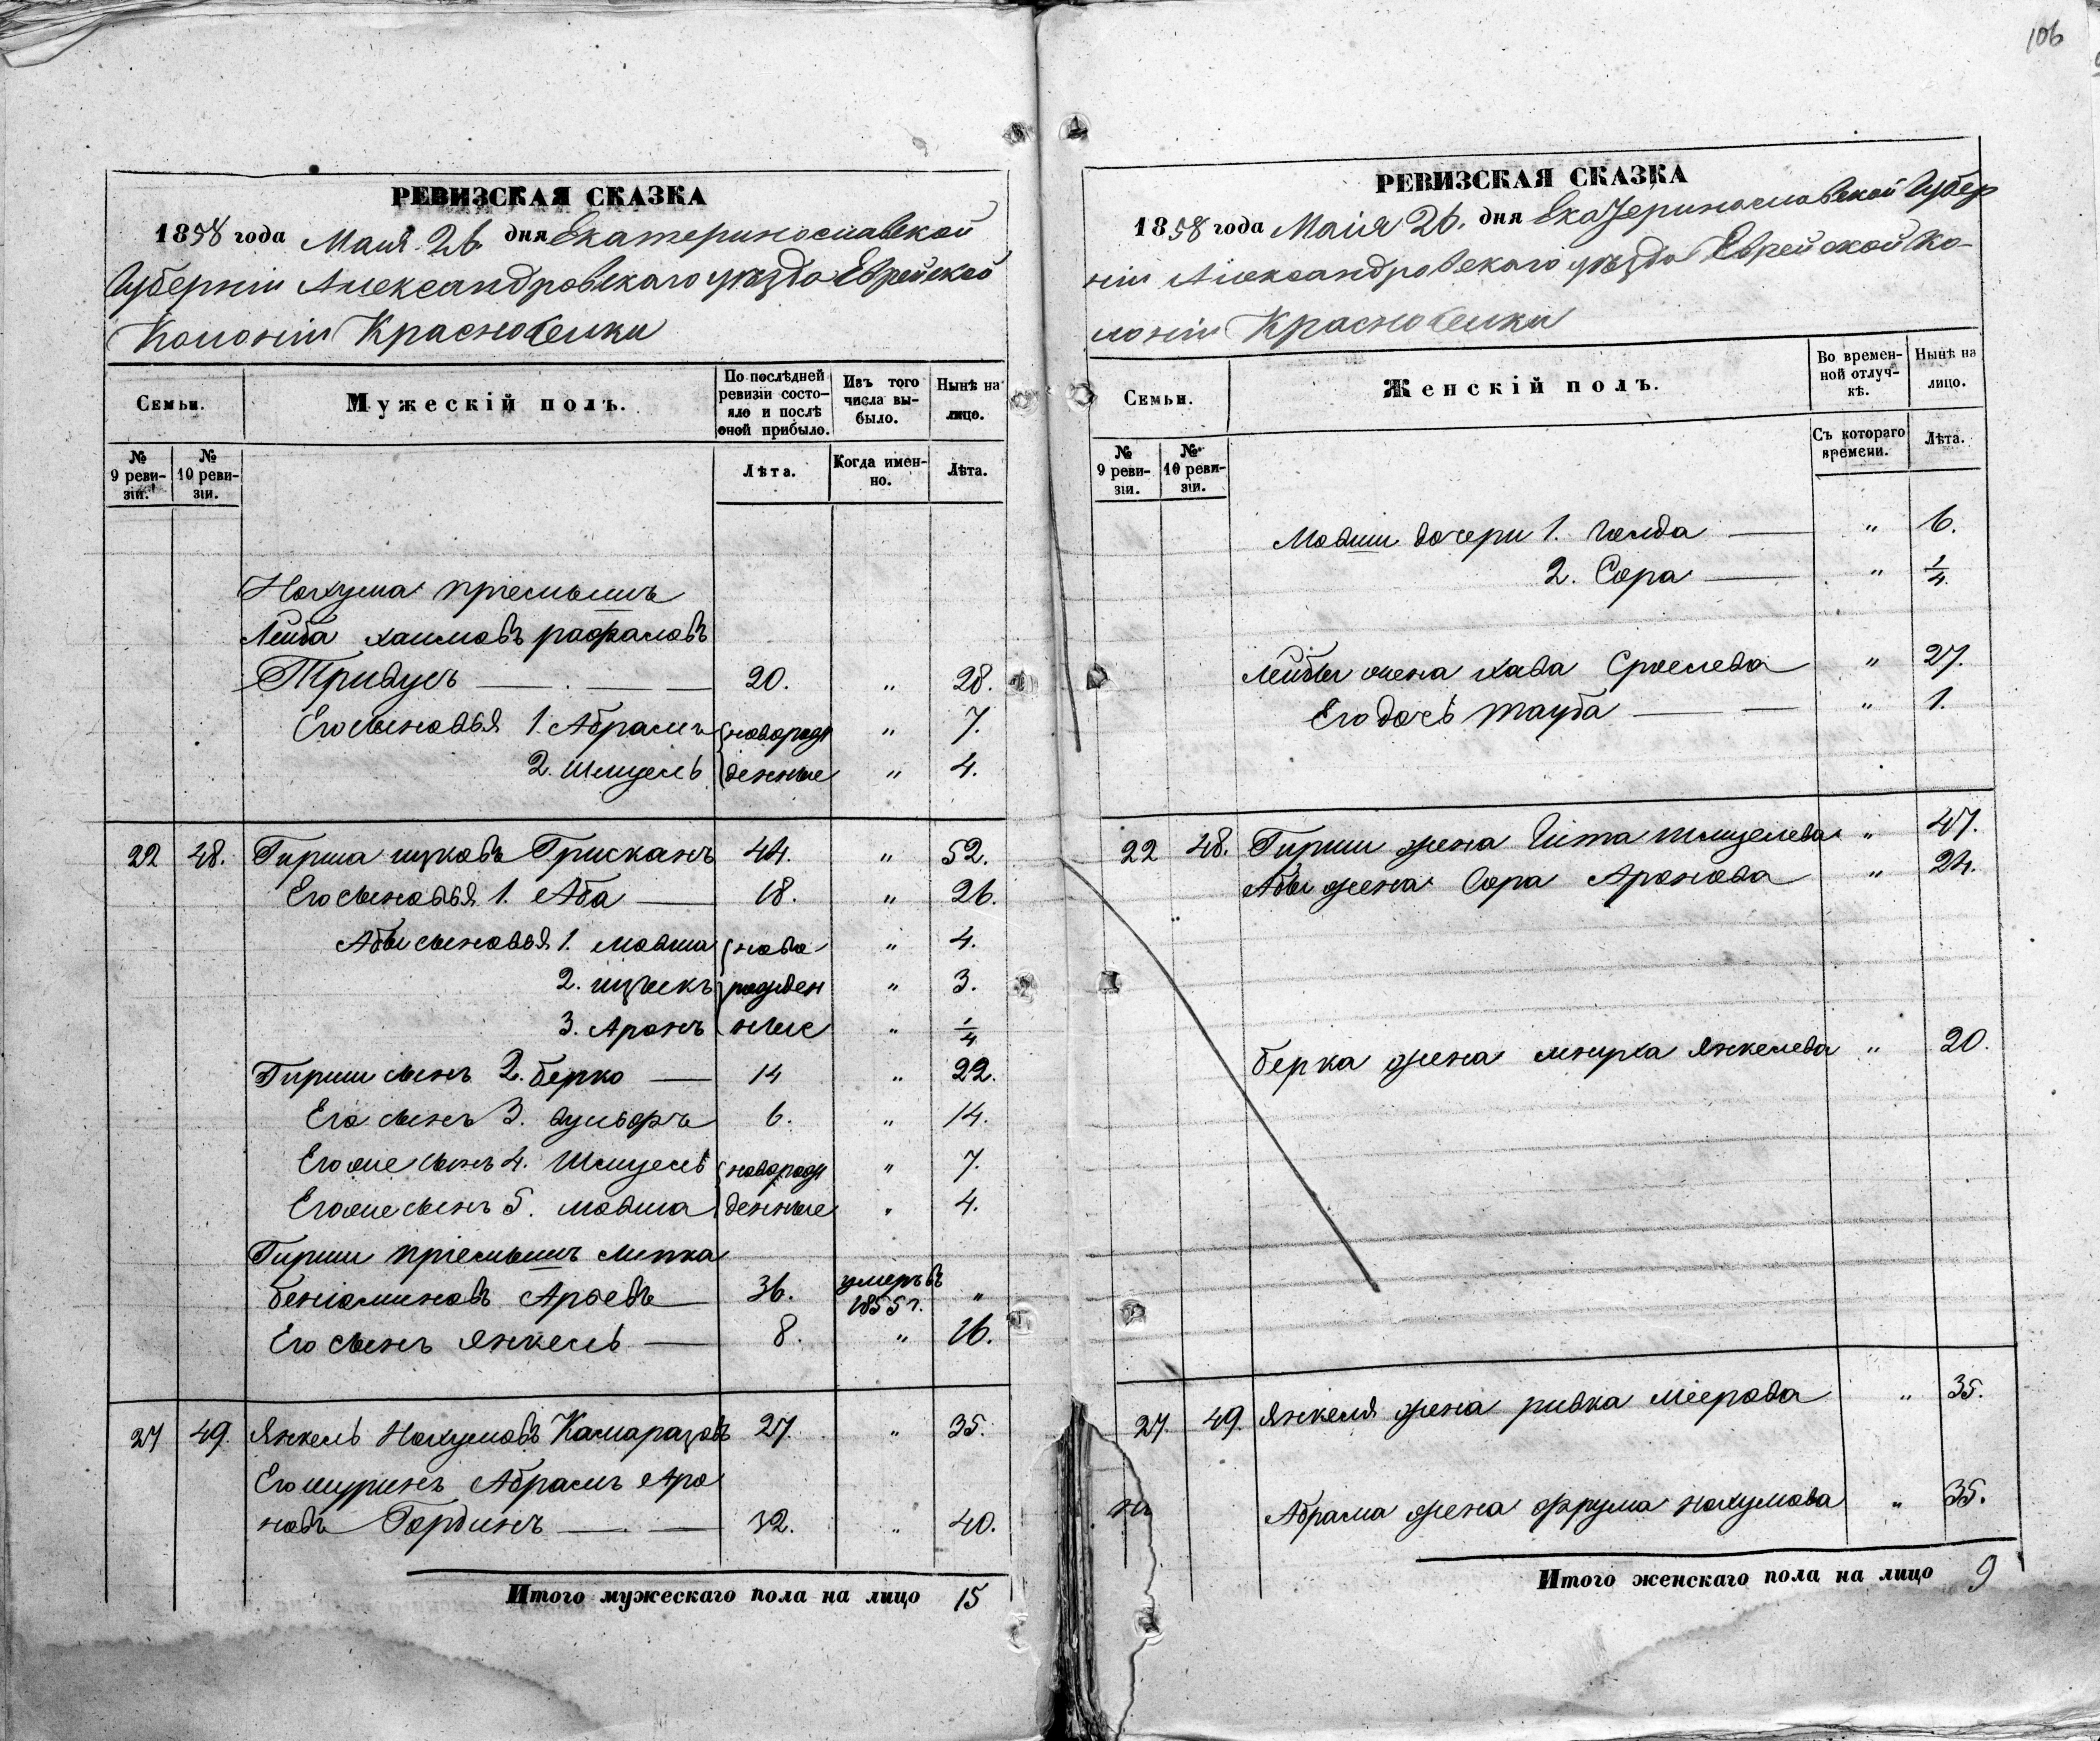 106
РЕВИЗСКАЯ СКАЗКА
1858 года Маия 26. дня Екатеринославской
Губерніи Александровскаго уѣзда Еврейской
Колоніи Красноселки
Семьи.
Мужескій полъ.
По послѣдней ревизіи состояло и послѣ оной прибыло.
Изъ того числа выбыло.
Нынѣ на лицо.
№ 9 ревизіи.
№ 10 ревизіи.
Лѣта.
Когда именно.
Лѣта.
Нохума пріемышъ
Лейба Хаимовъ
Тривусъ — . — 20. " 28.
Его сыновья 1. Абрамъ новорож " 7.
2. Шмуель денные " 4.
22 48. Гирша ицковъ Грисканъ 44. " 52.
Его сыновья 1. Аба — 18. " 26.
Абы сыновья 1. мовша ново " 4.
2. ицыкъ рожден " 3.
3. Аронъ ные " 1/4
Гирши сынъ 2. берко — 14 " 22.
Его сынъ 3. 6. " 14.
Егоже сынъ 4. Шмуель новорож " 7.
Егоже сынъ 5. мовша денные " 4.
Гирши пріемышъ липка
беніоминовъ Ароевъ 36. умеръ въ 1855 г. "
Его сынъ янкель — 8. " 16.
27 49. Янкель Нохумовъ Камаразовъ 27. " 35.
Его шуринъ Абрамъ Аро
новъ Гординъ — . — 32. " 40.
Итого мужескаго пола на лицо 15
РЕВИЗСКАЯ СКАЗКА
1858 года Маія 26. дня Екатеринославской Губер
ніи Александровскаго уѣзда Еврейской Ко-
лоніи Красноселки
Семьи.
Женскій полъ.
Во временной отлучкѣ.
Нынѣ на лицо.
№ 9 ревизіи.
№ 10 ревизіи.
Съ котораго времени.
Лѣта.
Мовши дочери 1. Голда — " 6.
2. Сора — " 1/4.
Лейбы жена хава Сроелева " 27.
Его дочь тауба — — " 1.
22 48. Гирши жена Гита шмуелева " 47.
Абы жена Сора Аронова " 24.
берка жена мнуха янкелева " 20.
27. 49. Янкеля жена ривка меерова " 35.
Абрама жена фрума нохумова " 35.
Итого женскаго пола на лицо 9